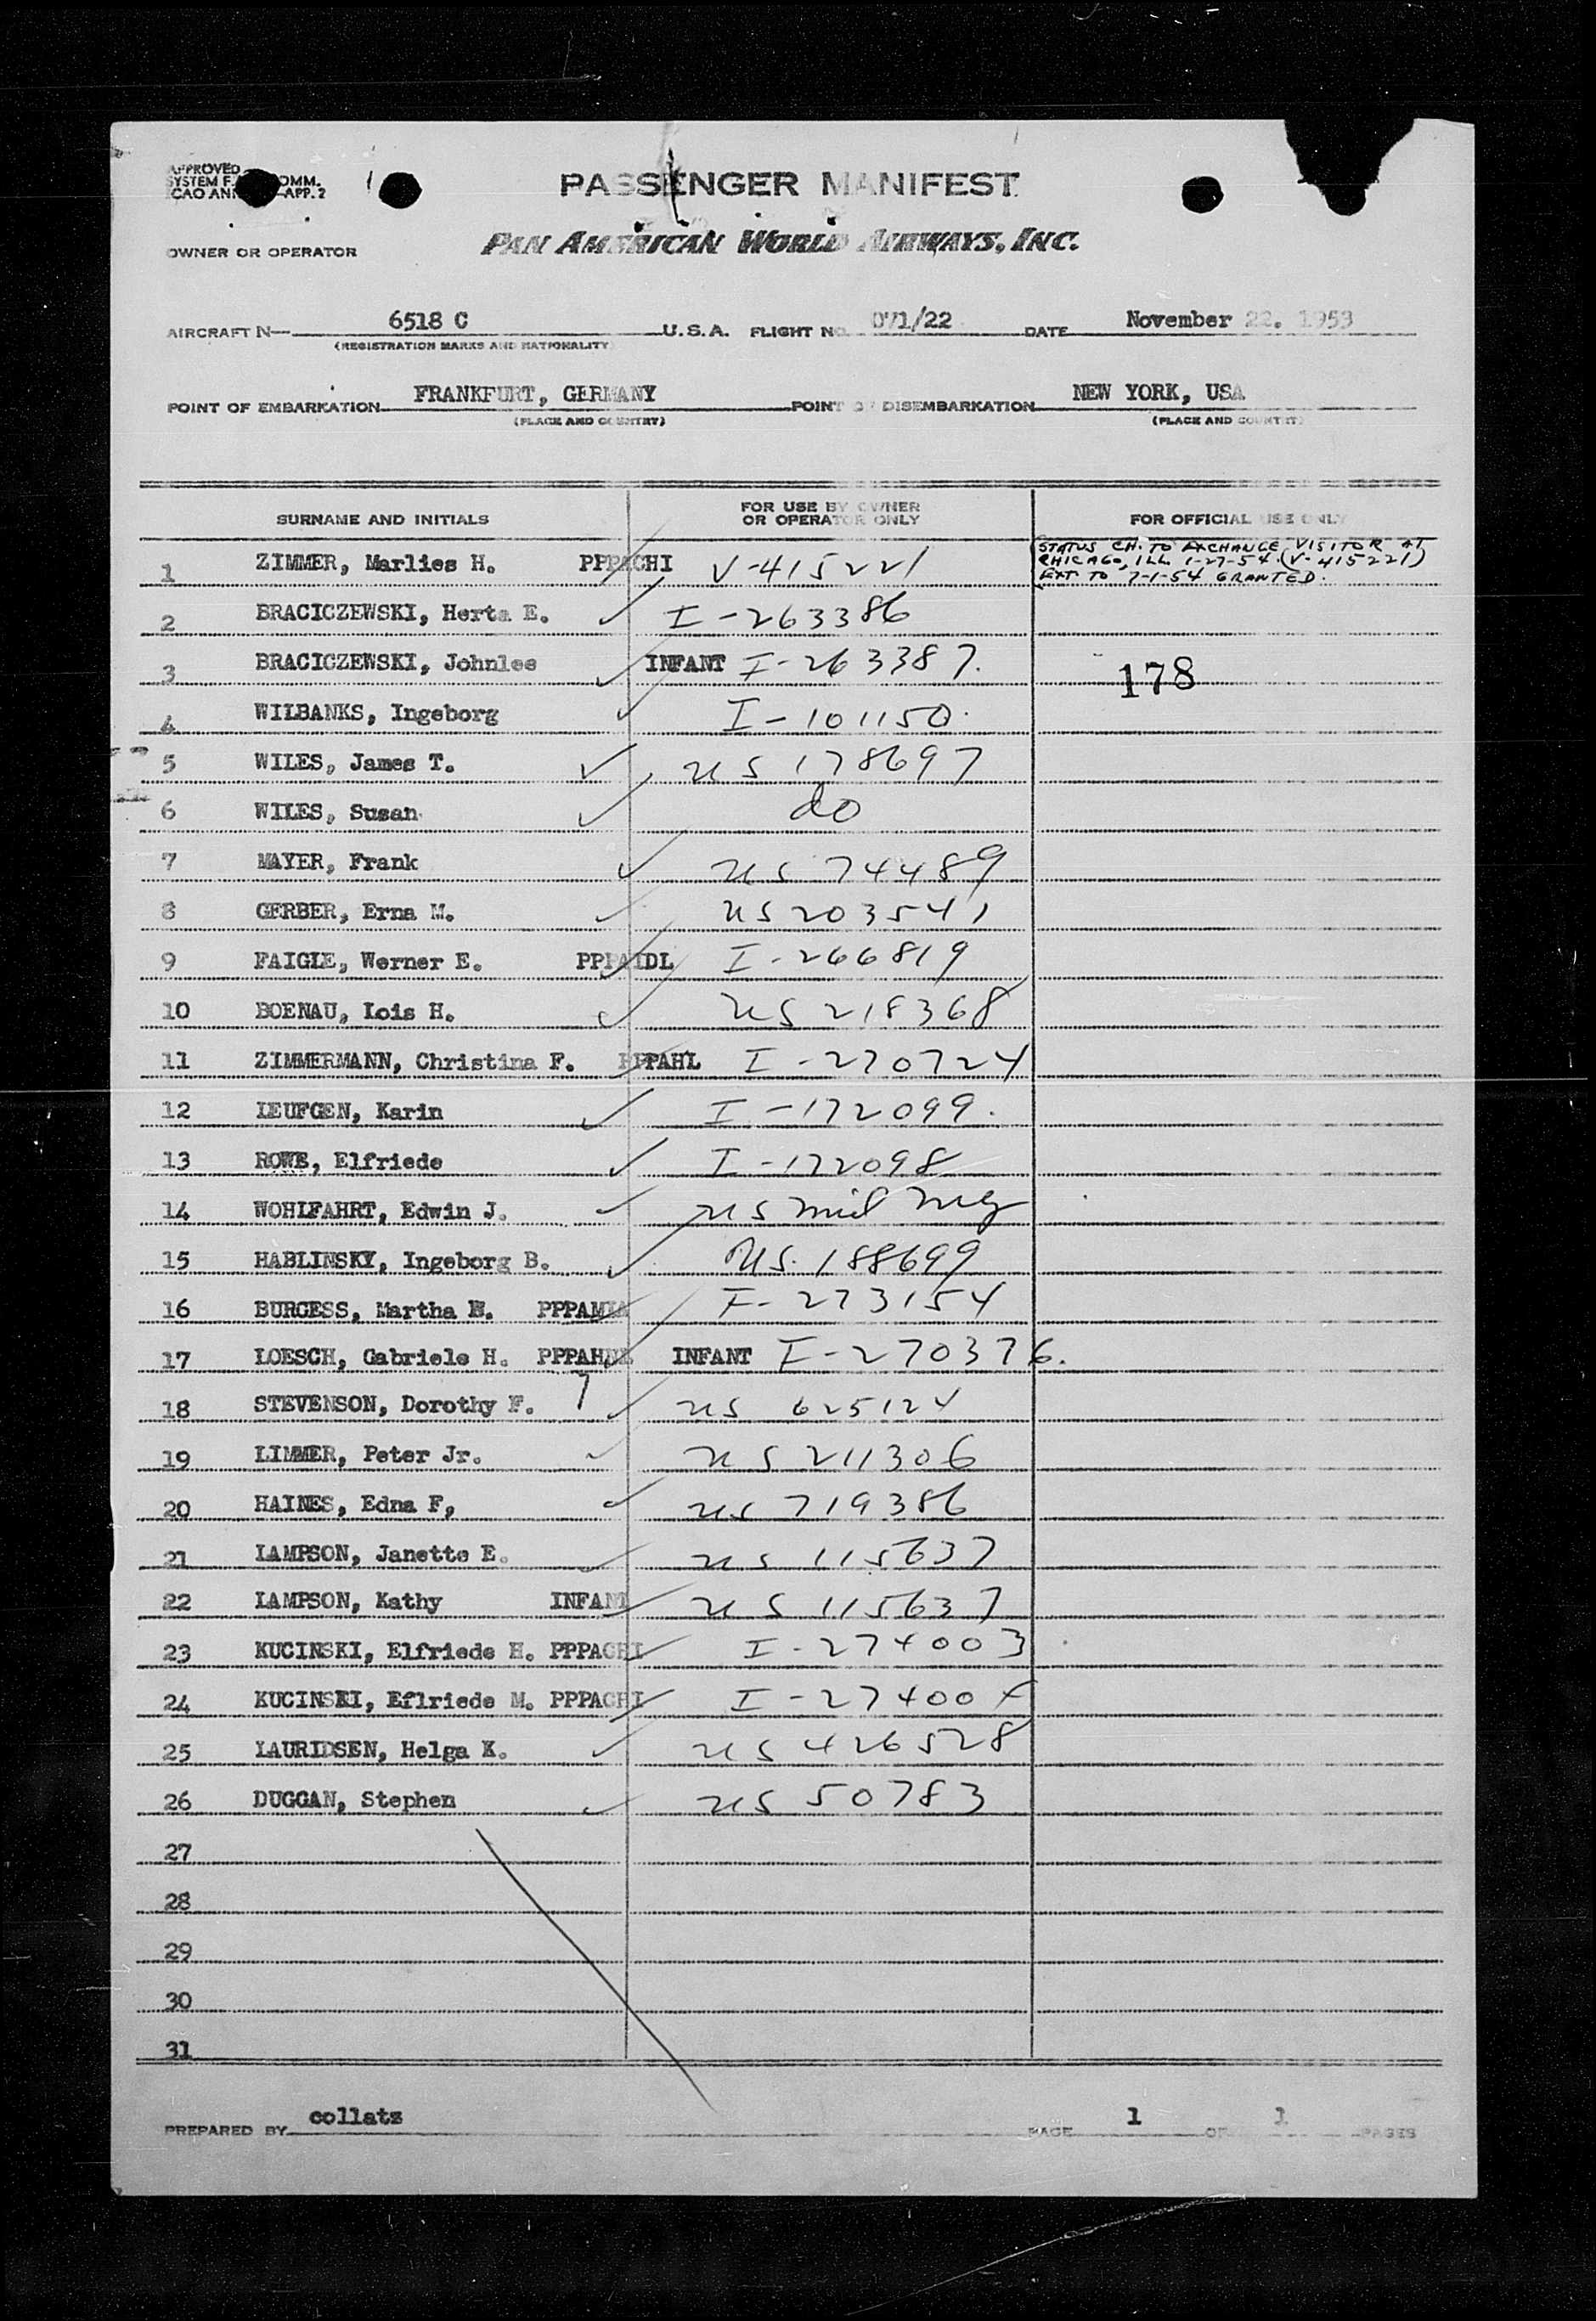 APPROVED
SYSTEM F. OMM.
ICAO AN APP. 2
PASSENGER MANIFEST
OWNER OR OPERATOR PAN AMERICAN WORLD AIRWAYS, INC.
AIRCRAFT N— 6518 C U.S.A. FLIGHT NO. 071/22 DATE November 22. 1953
(REGISTRATION MARKS AND NATIONALITY)
POINT OF EMBARKATION FRANKFURT, GERMANY POINT OF DISEMBARKATION NEW YORK, USA
(PLACE AND COUNTRY) (PLACE AND COUNTRY)
SURNAME AND INITIALS FOR USE BY OWNER OR OPERATOR ONLY FOR OFFICIAL USE ONLY
1 ZIMMER, Marlies H. PPPACHI V-415221 STATUS CH. TO EXCHANGE VISITOR AT
CHICAGO, ILL 1-27-54. (V-415221)
EXT. TO 7-1-54 GRANTED.
2 BRACICZEWSKI, Herta E. I-263386
3 BRACICZEWSKI, Johnlee INFANT I-263387. 178
4 WILBANKS, Ingeborg I-101150.
5 WILES, James T. US 178697
6 WILES, Susan do
7 MAYER, Frank US 74489
8 GERBER, Erna M. US 203541
9 FAIGLE, Werner E. PPPAIDL I-266819
10 BOENAU, Lois H. US 218368
11 ZIMMERMANN, Christina F. PPPAHL I-270724
12 LEUFGEN, Karin I-172099.
13 ROWE, Elfriede I-172098
14 WOHLFAHRT, Edwin J. US mil
15 HABLINSKY, Ingeborg B. US. 188699
16 BURGESS, Martha E. PPPAMIA I-273154
17 LOESCH, Gabriele H. INFANT I-270376.
18 STEVENSON, Dorothy F. 7 US 625124
19 LIMMER, Peter Jr. US 211306
20 HAINES, Edna F, US 719386
21 LAMPSON, Janette E. US 115637
22 LAMPSON, Kathy INFANT US 115637
23 KUCINSKI, Elfriede H. PPPACHI I-274003
24 KUCINSKI, Eflriede M. PPPACHI I-274004
25 LAURIDSEN, Helga K. US 426528
26 DUGGAN, Stephen US 50783
27
28
29
30
31
PREPARED BY collatz PAGE 1 OF 1 PAGES